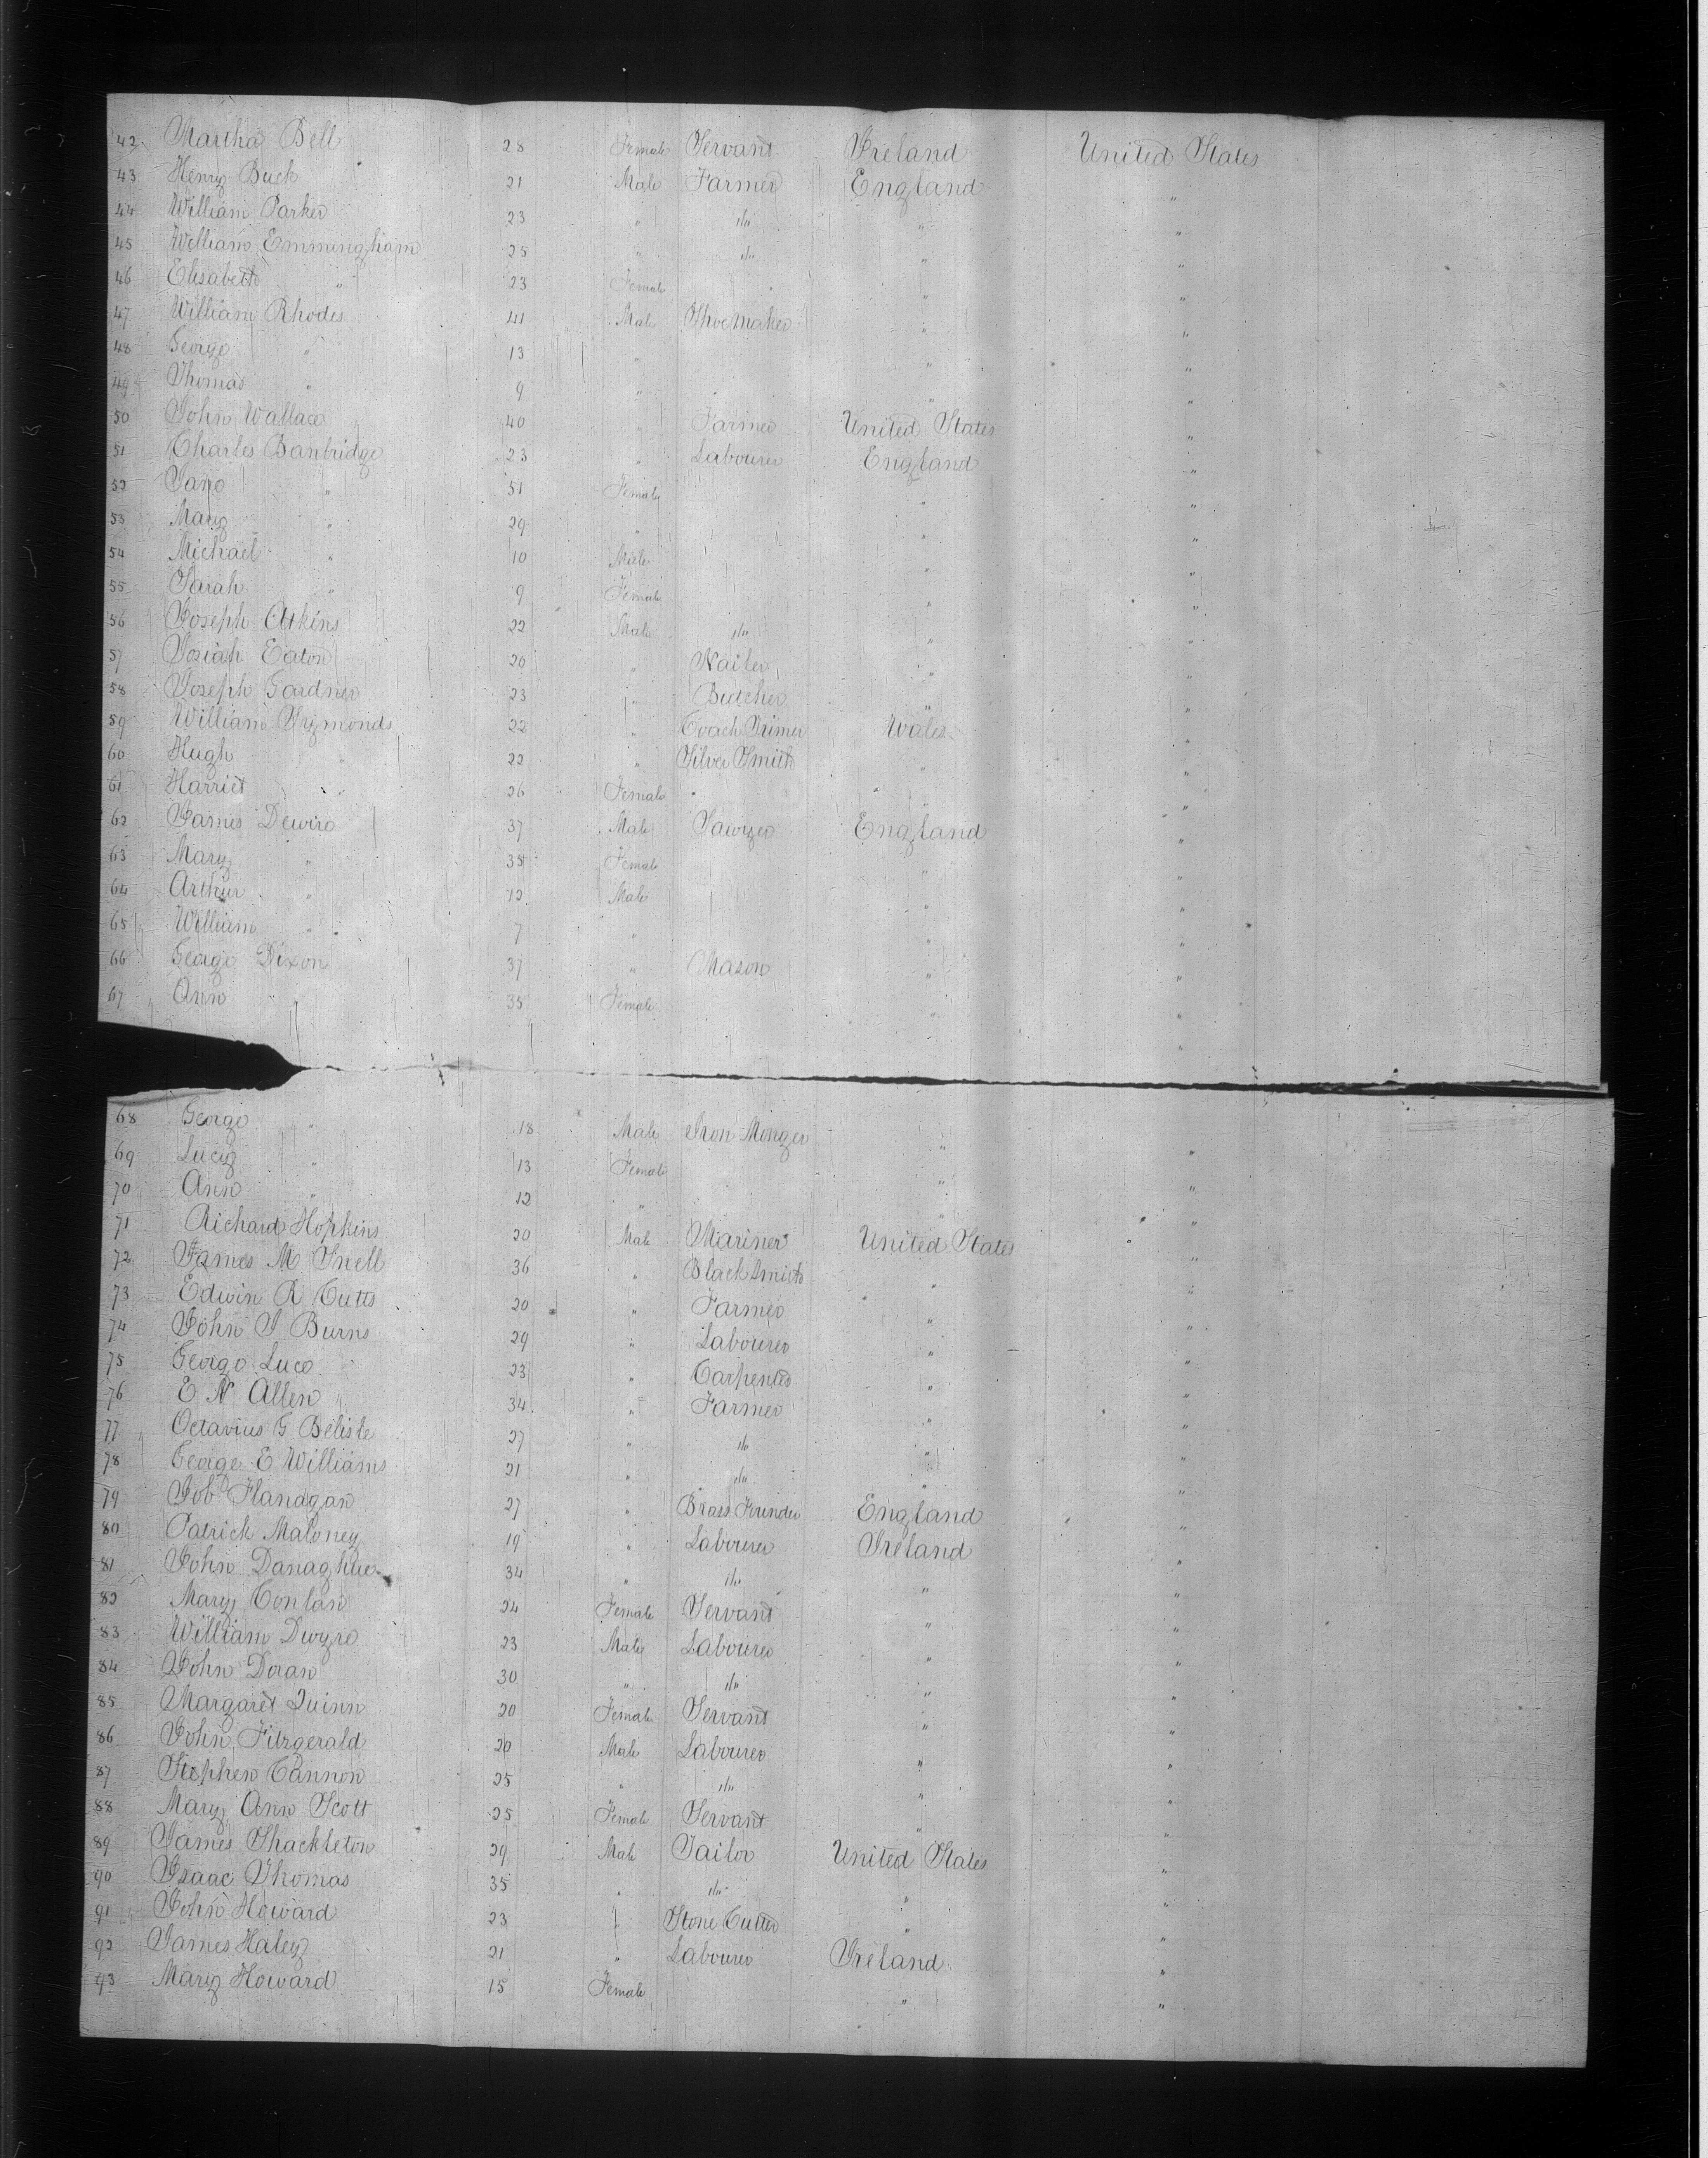 42 Martha Bell 28 Female Servant Ireland United States
43 Henry Buck 21 Male Farmer England "
44 William Parker 23 " do " "
45 William Emmingham 25 " do " "
46 Elisabeth " 23 Female " " "
47 William Rhodes 41 Male Shoemaker " "
48 George " 13 " " "
49 Thomas " 9 " " "
50 John Wallace 40 " Farmer United States "
51 Charles Banbridge 23 " Labourer England "
52 Jane " 51 Female " "
53 Mary " 29 " " "
54 Michael " 10 Male " "
55 Sarah " 9 Female " "
56 Joseph Atkins 22 Male do " "
57 Josiah Eaton 20 " Nailer " "
58 Joseph Gardner 23 " Butcher " "
59 William Symonds 22 " Coach Trimer Wales "
60 Hugh " 22 " Silver Smith " "
61 Harriet " 26 Female " " "
62 James Dewire 37 Male Sawyer England "
63 Mary " 38 Female " "
64 Arthur " 12 Male " "
65 William " 7 " " "
66 George Dixon 37 " Mason " "
67 Ann " 35 Female " "
68 George " 18 Male Iron Monger " "
69 Lucy " 13 Female " "
70 Ann " 12 " " "
71 Richard Hopkins 20 Male Mariner United States "
72 James M Snell 36 " Black Smith " "
73 Edwin R Cutts 20 " Farmer " "
74 John S Burns 29 " Labourer " "
75 George Luce 23 " Carpenter " "
76 E N Allen 34 " Farmer " "
77 Octavius G Belisle 27 " do " "
78 George E Williams 21 " do " "
79 Job Flanagan 27 " Brass Founder England "
80 Patrick Maloney 19 " Labourer Ireland "
81 John Danaghue 34 " do " "
82 Mary Conlan 24 Female Servant " "
83 William Dwyre 23 Male Labourer " "
84 John Doran 30 " do " "
85 Margaret Quinn 20 Female Servant " "
86 John Fitzgerald 20 Male Labourer " "
87 Stephen Cannon 25 " do " "
88 Mary Ann Scott 25 Female Servant " "
89 James Shackleton 29 Male Tailor United States "
90 Isaac Thomas 35 " do " "
91 John Howard 23 " Stone Cutter " "
92 James Haley 21 " Labourer Ireland "
93 Mary Howard 15 Female " "